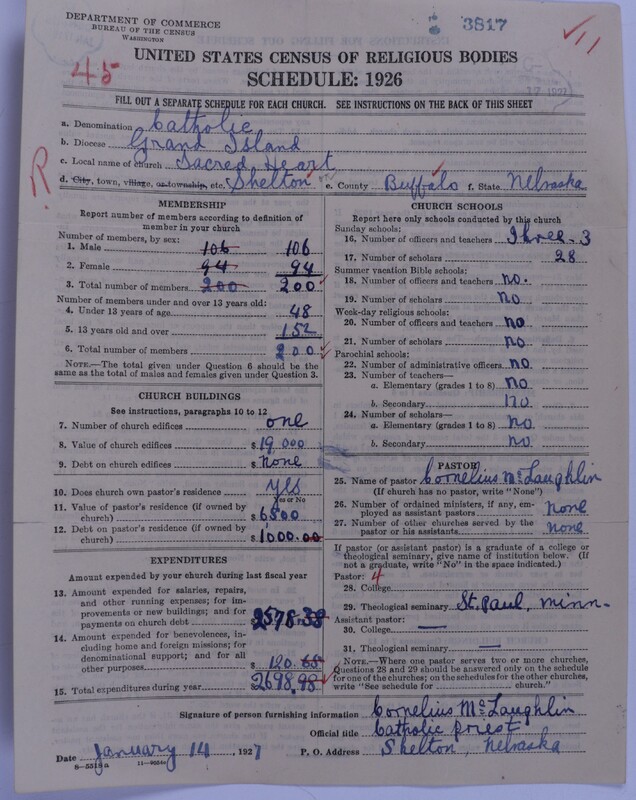 DEPARTMENT OF COMMERCE
BUREAU OF THE CENSUS
WASHINGTON
3817
11
45
UNITED STATES CENSUS OF RELIGIOUS BODIES
SCHEDULE: 1926
FILL OUT A SEPARATE SCHEDULE FOR EACH CHURCH. SEE INSTRUCTIONS ON THE BACK OF THIS SHEET
a. Denomination Catholic
b. Diocese Grand Island
c. Local name of church Sacred Heart
R
d. City, town, village, or township, etc. Shelton e. County Buffalo f. State Nebraska
MEMBERSHIP
Report number of members according to definition of member in your church
Number of members, by sex:
1. Male 106 106
2. Female 94 94
3. Total number of members 200 200
Number of members under and over 13 years old:
4. Under 13 years of age 48
5. 13 years old and over 152
6. Total number of members 200
NOTE.—The total given under Question 6 should be the same as the total of males and females given under Question 3.
CHURCH BUILDINGS
See instructions, paragraphs 10 to 12
7. Number of church edifices one
8. Value of church edifices $ 19.000
9. Debt on church edifices $ none
10. Does church own pastor's residence yes
Yes or No
11. Value of pastor's residence (if owned by church) $ 6500
12. Debt on pastor's residence (if owned by church) $ 1000.00
EXPENDITURES
Amount expended by your church during last fiscal year
13. Amount expended for salaries, repairs, and other running expenses; for improvements or new buildings; and for payments on church debt $ 2578.38
14. Amount expended for benevolences, including home and foreign missions; for denominational support; and for all other purposes $ 120.68
15. Total expenditures during year $ 2698.98
CHURCH SCHOOLS
Report here only schools conducted by this church
Sunday schools:
16. Number of officers and teachers Three-3
17. Number of scholars 28
Summer vacation Bible schools:
18. Number of officers and teachers no.
19. Number of scholars no
Week-day religious schools:
20. Number of officers and teachers no
21. Number of scholars no
Parochial schools:
22. Number of administrative officers no
23. Number of teachers—
a. Elementary (grades 1 to 8) no
b. Secondary no
24. Number of scholars—
a. Elementary (grades 1 to 8) no
b. Secondary no
PASTOR
25. Name of pastor Cornelius McLaughlin
(If church has no pastor, write "None")
26. Number of ordained ministers, if any, employed as assistant pastors none
27. Number of other churches served by the pastor or his assistants none
If pastor (or assistant pastor) is a graduate of a college or theological seminary, give name of institution below. (If not a graduate, write "No" in the space indicated.)
Pastor: 4
28. College
29. Theological seminary St. Paul, Minn-
Assistant pastor:
30. College —
31. Theological seminary —
NOTE.—Where one pastor serves two or more churches, Questions 28 and 29 should be answered only on the schedule for one of the churches; on the schedules for the other churches, write "See schedule for church."
Signature of person furnishing information Cornelius McLaughlin
Official title Catholic priest
Date January 14, 1927 P. O. Address Shelton, Nebraska
8-5518a